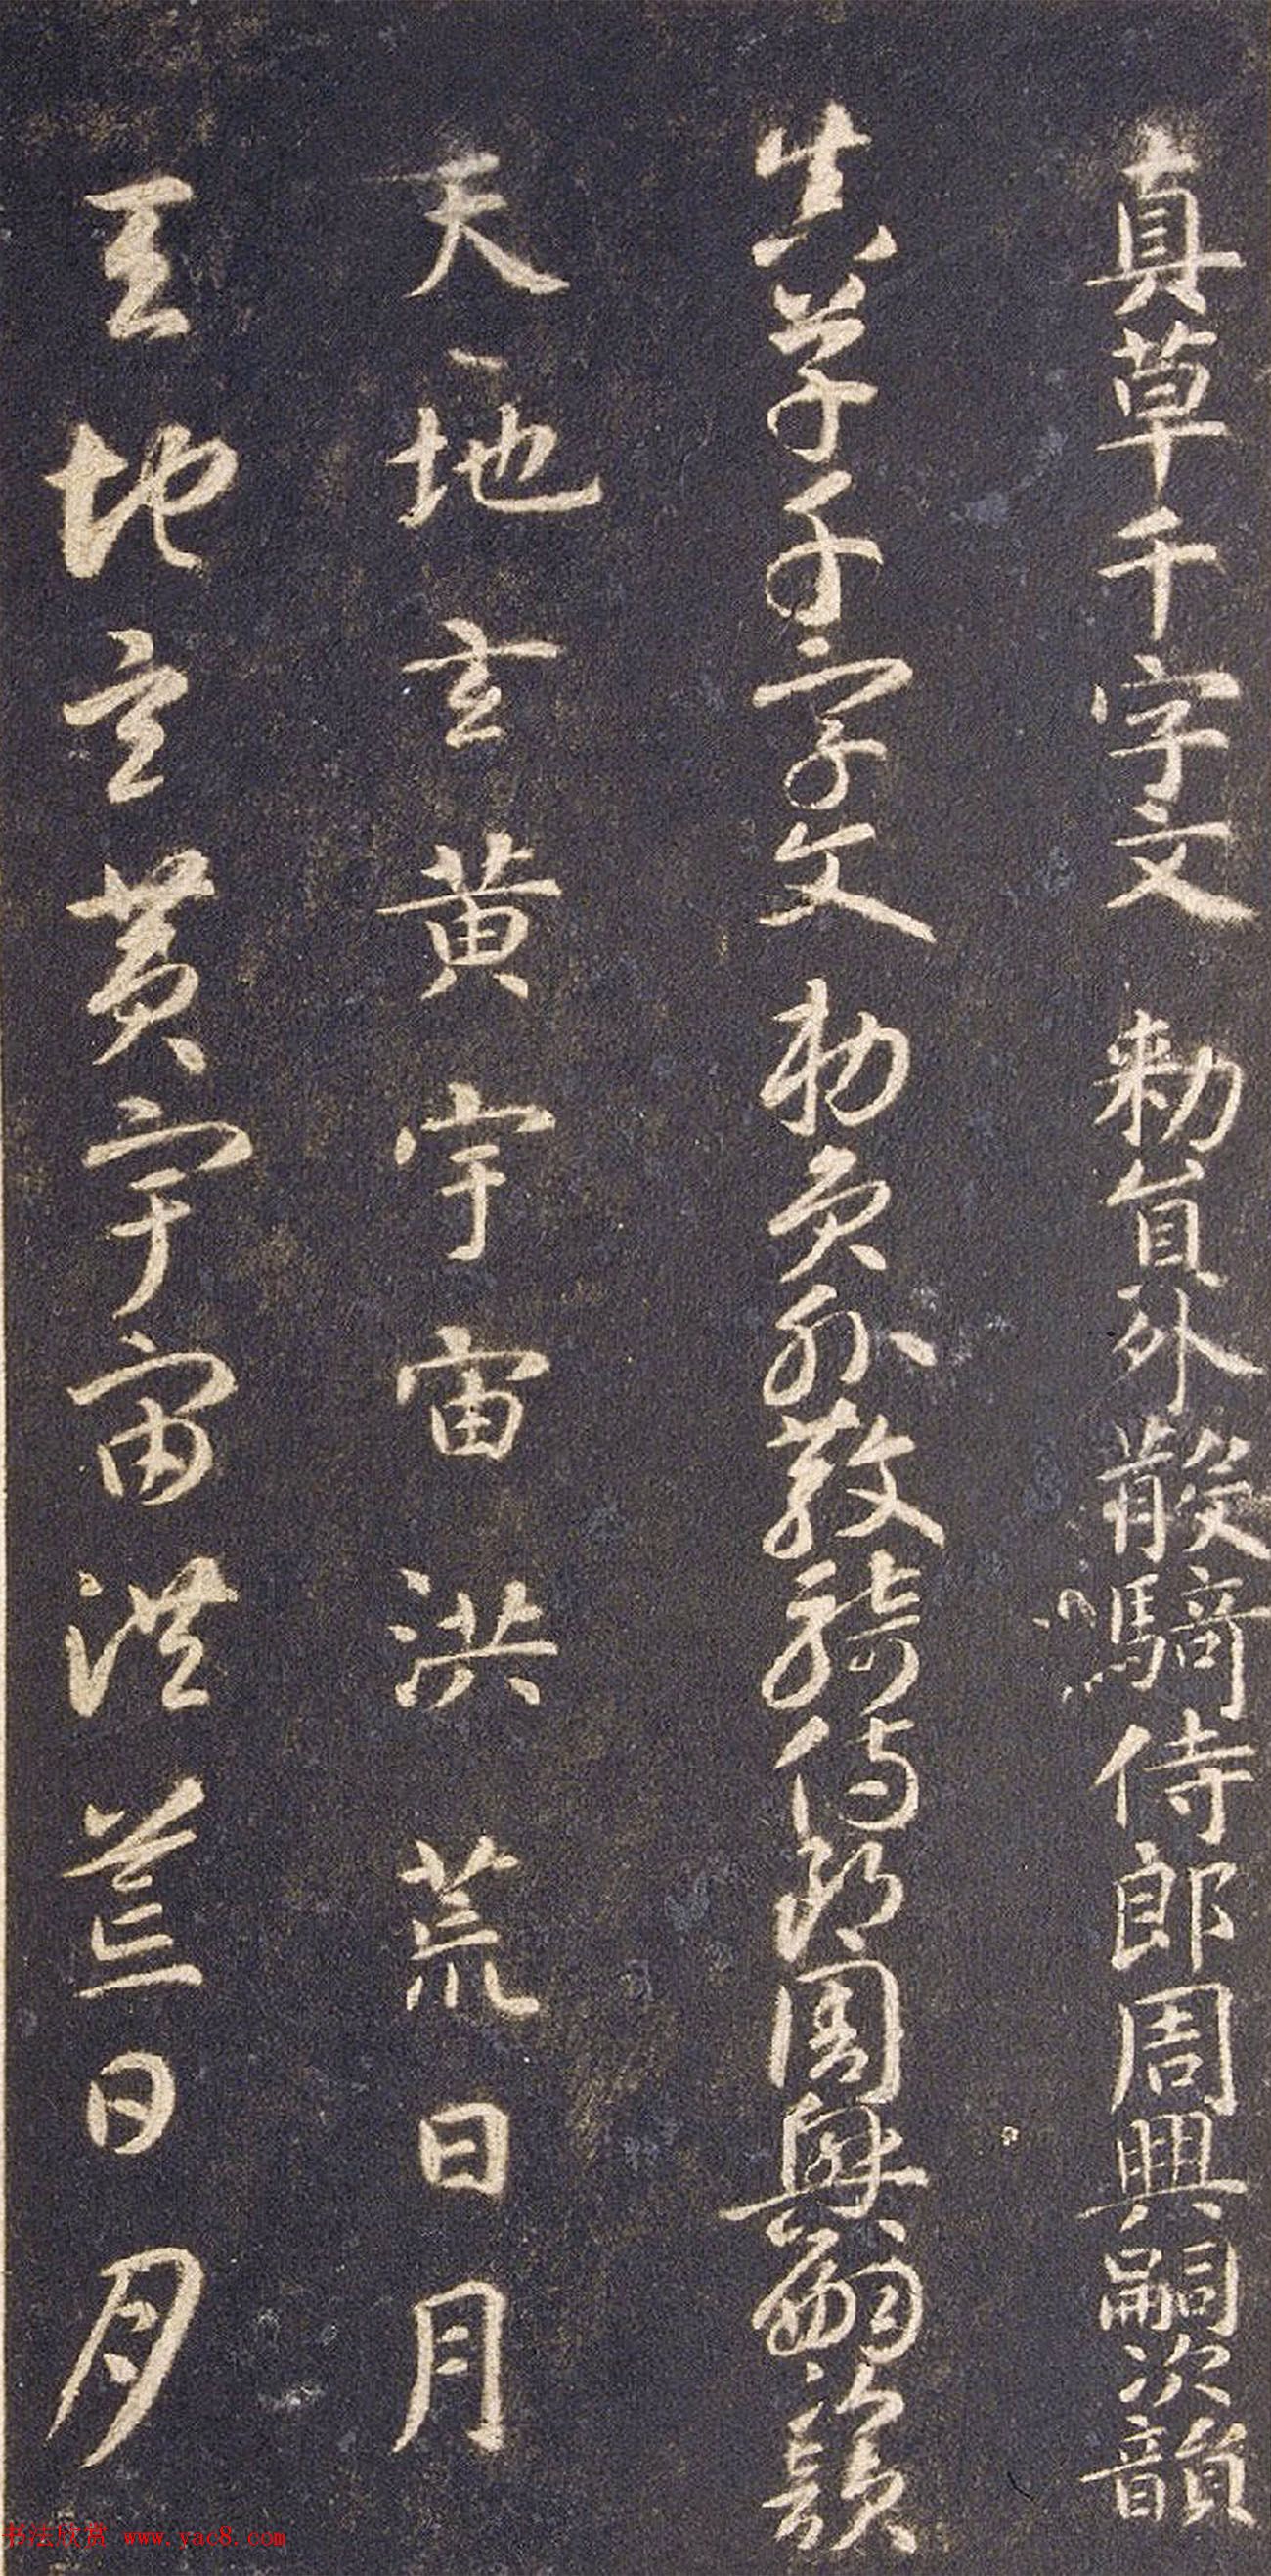 真草千字文 勑員外散騎侍郎周興嗣次韻
真草千字文 勑員外散騎侍郎周興嗣次韻
天地玄黃宇宙洪荒日月
天地玄黃宇宙洪荒日月
书法欣赏 www.yac8.com